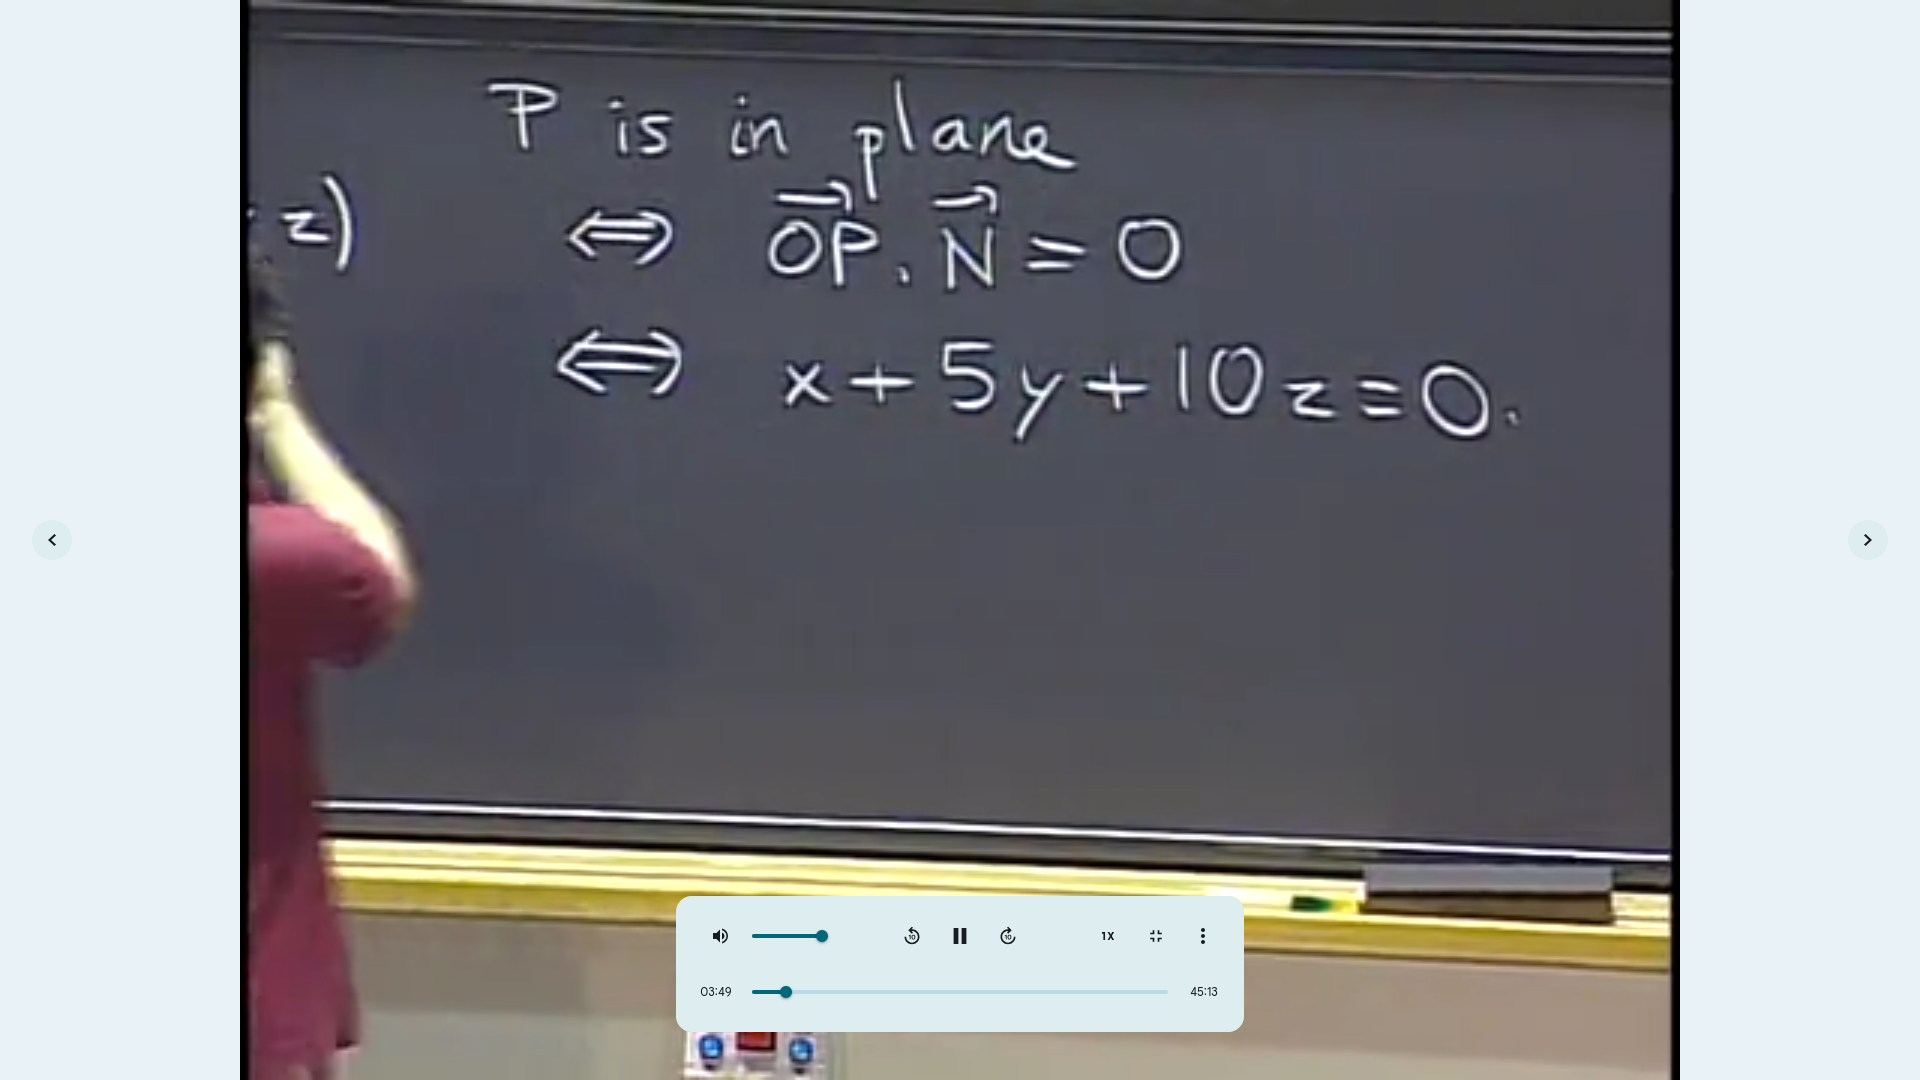 P is in plane
z)
⇔ OP⃗ . N⃗ = 0
⇔ x + 5y + 10z = 0.
10 10 1X
03:49 45:13